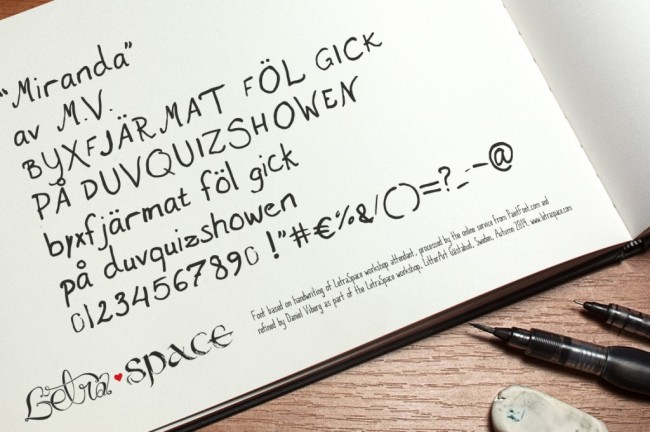 "Miranda"
av M.V.
BYXFJÄRMAT FÖL GICK
PÅ DUVQUIZSHOWEN
byxfjärmat föl gick
på duvquizshowen
01234567890 !"#€%&/()=?_-–@
Font based on handwriting of LetraSpace workshop attendant, processed by the online service from PaintFont.com and
refined by Daniel Viberg as part of the LetraSpace workshop, LitterArt Gästabud, Sweden, Autumn 2014. www.letraspace.com
Letra♥space